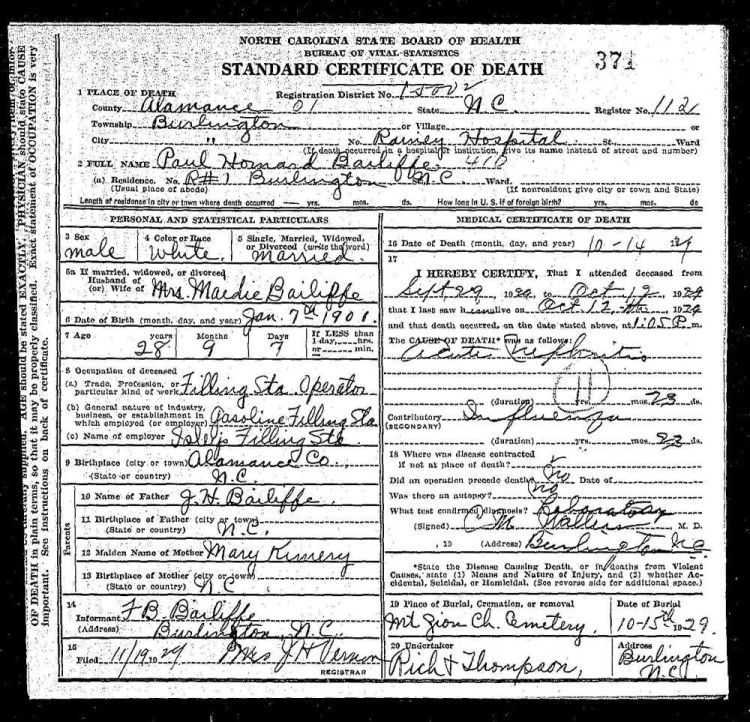 NORTH CAROLINA STATE BOARD OF HEALTH
BUREAU OF VITAL STATISTICS
STANDARD CERTIFICATE OF DEATH
371
1 PLACE OF DEATH Registration District No.
County Alamance 01 State N.C. Register No. 1121
Township Burlington or Village or
City " No. Rainey Hospital St., Ward
(If death occurred in a hospital or institution, give its name instead of street and number)
2 FULL NAME Paul Howard Bailiffe 410
(a) Residence. No. R#1 Burlington N.C. Ward.
(Usual place of abode) (If nonresident give city or town and State)
Length of residence in city or town where death occurred yrs. mos. ds. How long in U. S. if of foreign birth? yrs. mos. ds.
PERSONAL AND STATISTICAL PARTICULARS
3 Sex
male
4 Color or Race
White
5 Single, Married, Widowed,
or Divorced (write the word)
married.
5a If married, widowed, or divorced
Husband of
(or) Wife of Mrs. Maedie Bailiffe
6 Date of Birth (month, day, and year) Jan. 7th 1901.
7 Age years Months Days If LESS than
28 9 7 1 day, hrs.
or min.
8 Occupation of deceased
(a) Trade, Profession, or
particular kind of work Filling Sta Operator
(b) General nature of industry,
business, or establishment in
which employed (or employer) Gasoline Filling Sta
(c) Name of employer Isley's Filling Sta
9 Birthplace (city or town) Alamance Co.,
(State or country) N.C.
Parents
10 Name of Father J.H. Bailiffe.
11 Birthplace of Father (city or town)
(State or country) N.C.
12 Maiden Name of Mother Mary Kimery
13 Birthplace of Mother (city or town)
(State or country) N.C.
14
Informant F.B. Bailiffe
(Address) Burlington, N.C.
15
Filed 11/19 1929 Mrs J H Vernon
REGISTRAR
MEDICAL CERTIFICATE OF DEATH
16 Date of Death (month, day, and year) 10-14 1929
17
I HEREBY CERTIFY, That I attended deceased from
Sept 29, 1929, to Oct 12, 1929
that I last saw him alive on Oct 12, 1929
and that death occurred, on the date stated above, at 1:05 P. m.
The CAUSE OF DEATH* was as follows:
Acute Nephritis
11
(duration) yrs. mos. 23 ds.
Contributory Influenza
(SECONDARY)
(duration) yrs. mos. 23 ds.
18 Where was disease contracted
if not at place of death?
Did an operation precede death? no Date of
Was there an autopsy? no
What test confirmed diagnosis? Laboratory
(Signed) M. D.
, 19 (Address) Burlington N.C.
*State the Disease Causing Death, or in deaths from Violent
Causes, state (1) Means and Nature of Injury, and (2) whether Ac-
cidental, Suicidal, or Homicidal. (See reverse side for additional space.)
19 Place of Burial, Cremation, or removal
Mt Zion Ch. Cemetery.
Date of Burial
10-15th 1929.
20 Undertaker
Rich & Thompson,
Address
Burlington
N.C.
AGE should be stated EXACTLY. PHYSICIAN should state CAUSE
OF DEATH in plain terms, so that it may be properly classified. Exact statement of OCCUPATION is very
important. See instructions on back of certificate.